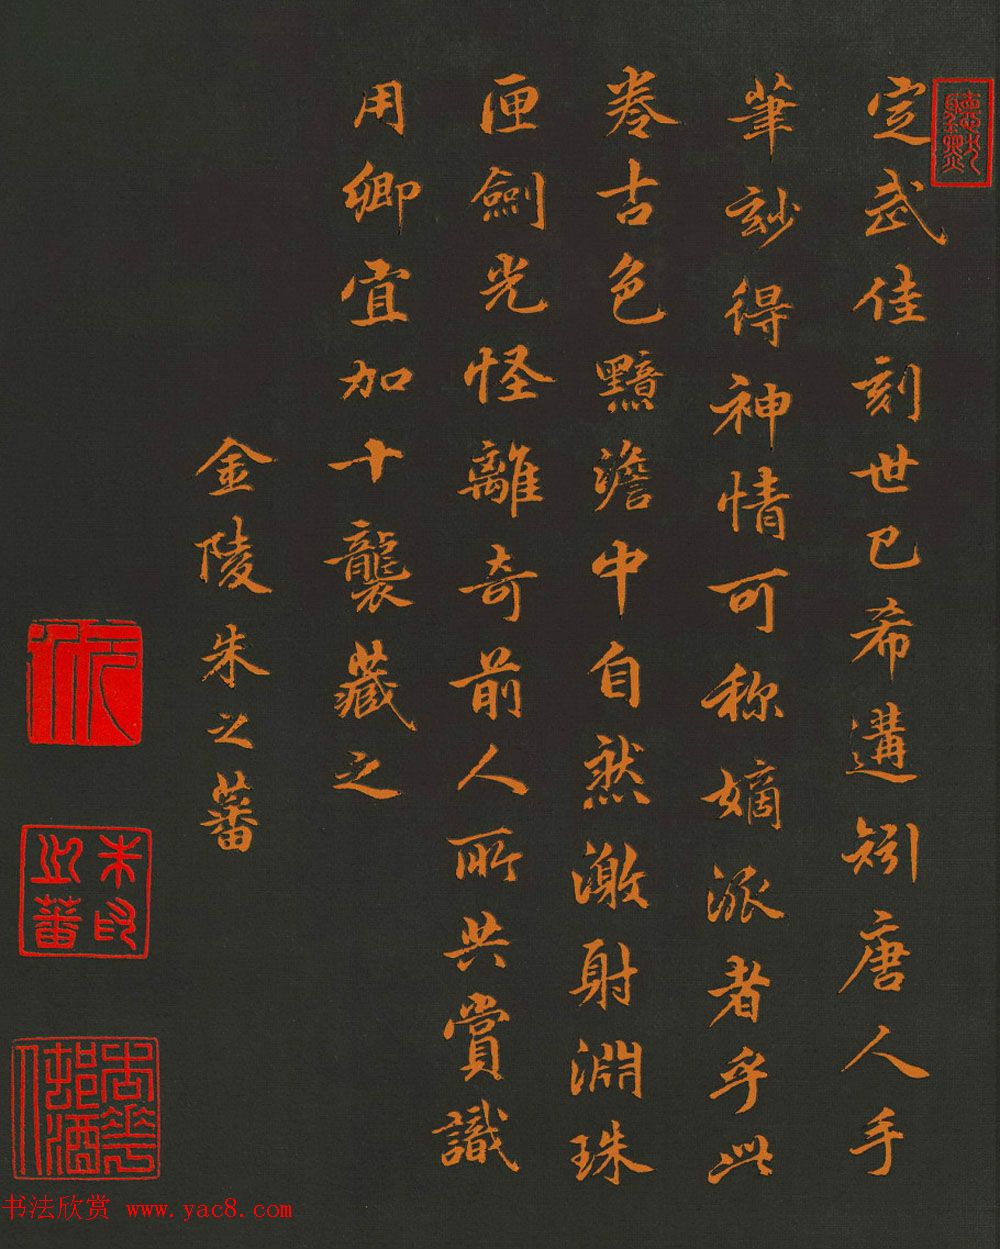 定武佳刻世已希遘矧唐人手
筆妙得神情可称嫡派者乎此
卷古色黯澹中自然激射淵珠
匣劍光怪離奇前人所共賞識
用卿宜加十襲藏之
金陵朱之蕃
朱印之蕃
书法欣赏 www.yac8.com